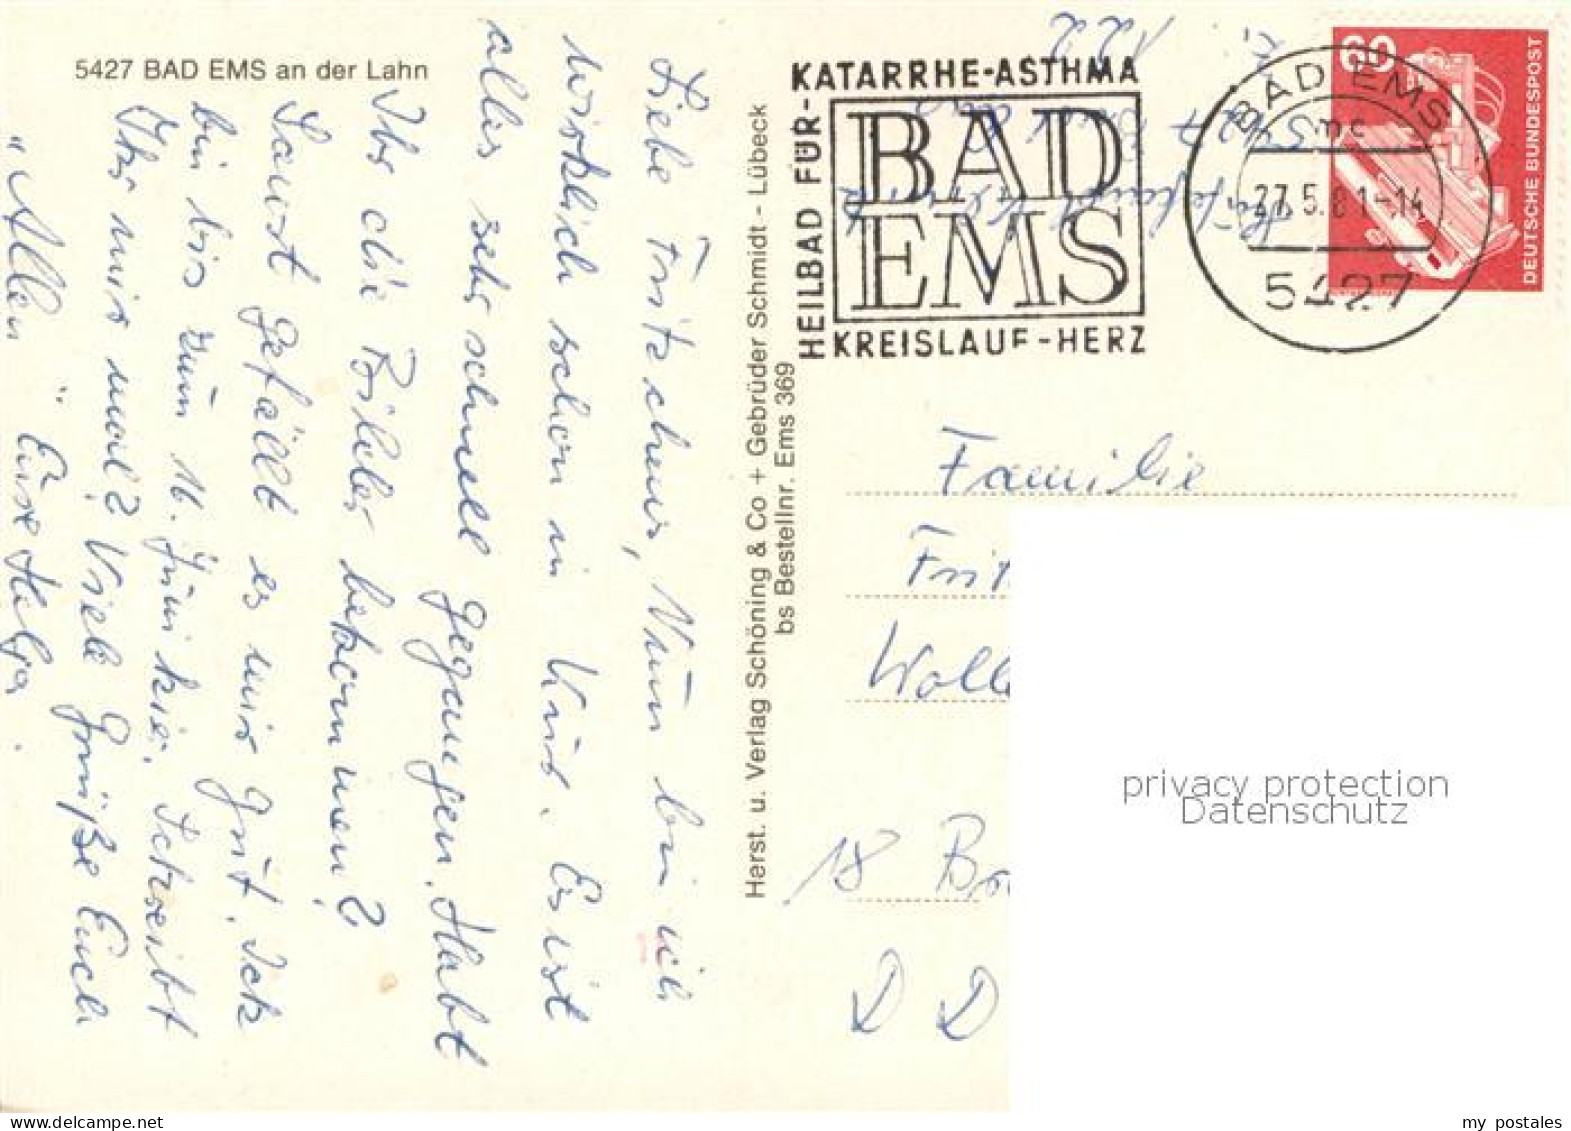 5427 BAD EMS an der Lahn
Liebe Fritschens, Nun bin ich
wirklich schon in Kur. Erst
alles sehr schnell gegangen. Habt
Ihr die Bilder bekommen?
Sonst gefällt es mir gut. Ich
bin bis zum 16. Juni hier. Schreibt
Ihr mir mal? Viele Grüße Euch
"Allen" Eure Helga.
Herst. u. Verlag Schöning & Co + Gebrüder Schmidt - Lübeck
bs Bestellnr. Ems 369
HEILBAD FÜR-
KATARRHE-ASTHMA
BAD
EMS
KREISLAUF-HERZ
BAD EMS
mc
27.5.81-14
5427
60
DEUTSCHE BUNDESPOST
122
5427
Familie
Frit
Wolle
18 Br
D D
privacy protection
Datenschutz
my postales